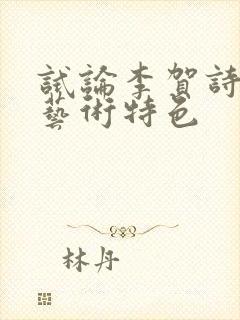 試論李賀詩
藝術特色
林丹